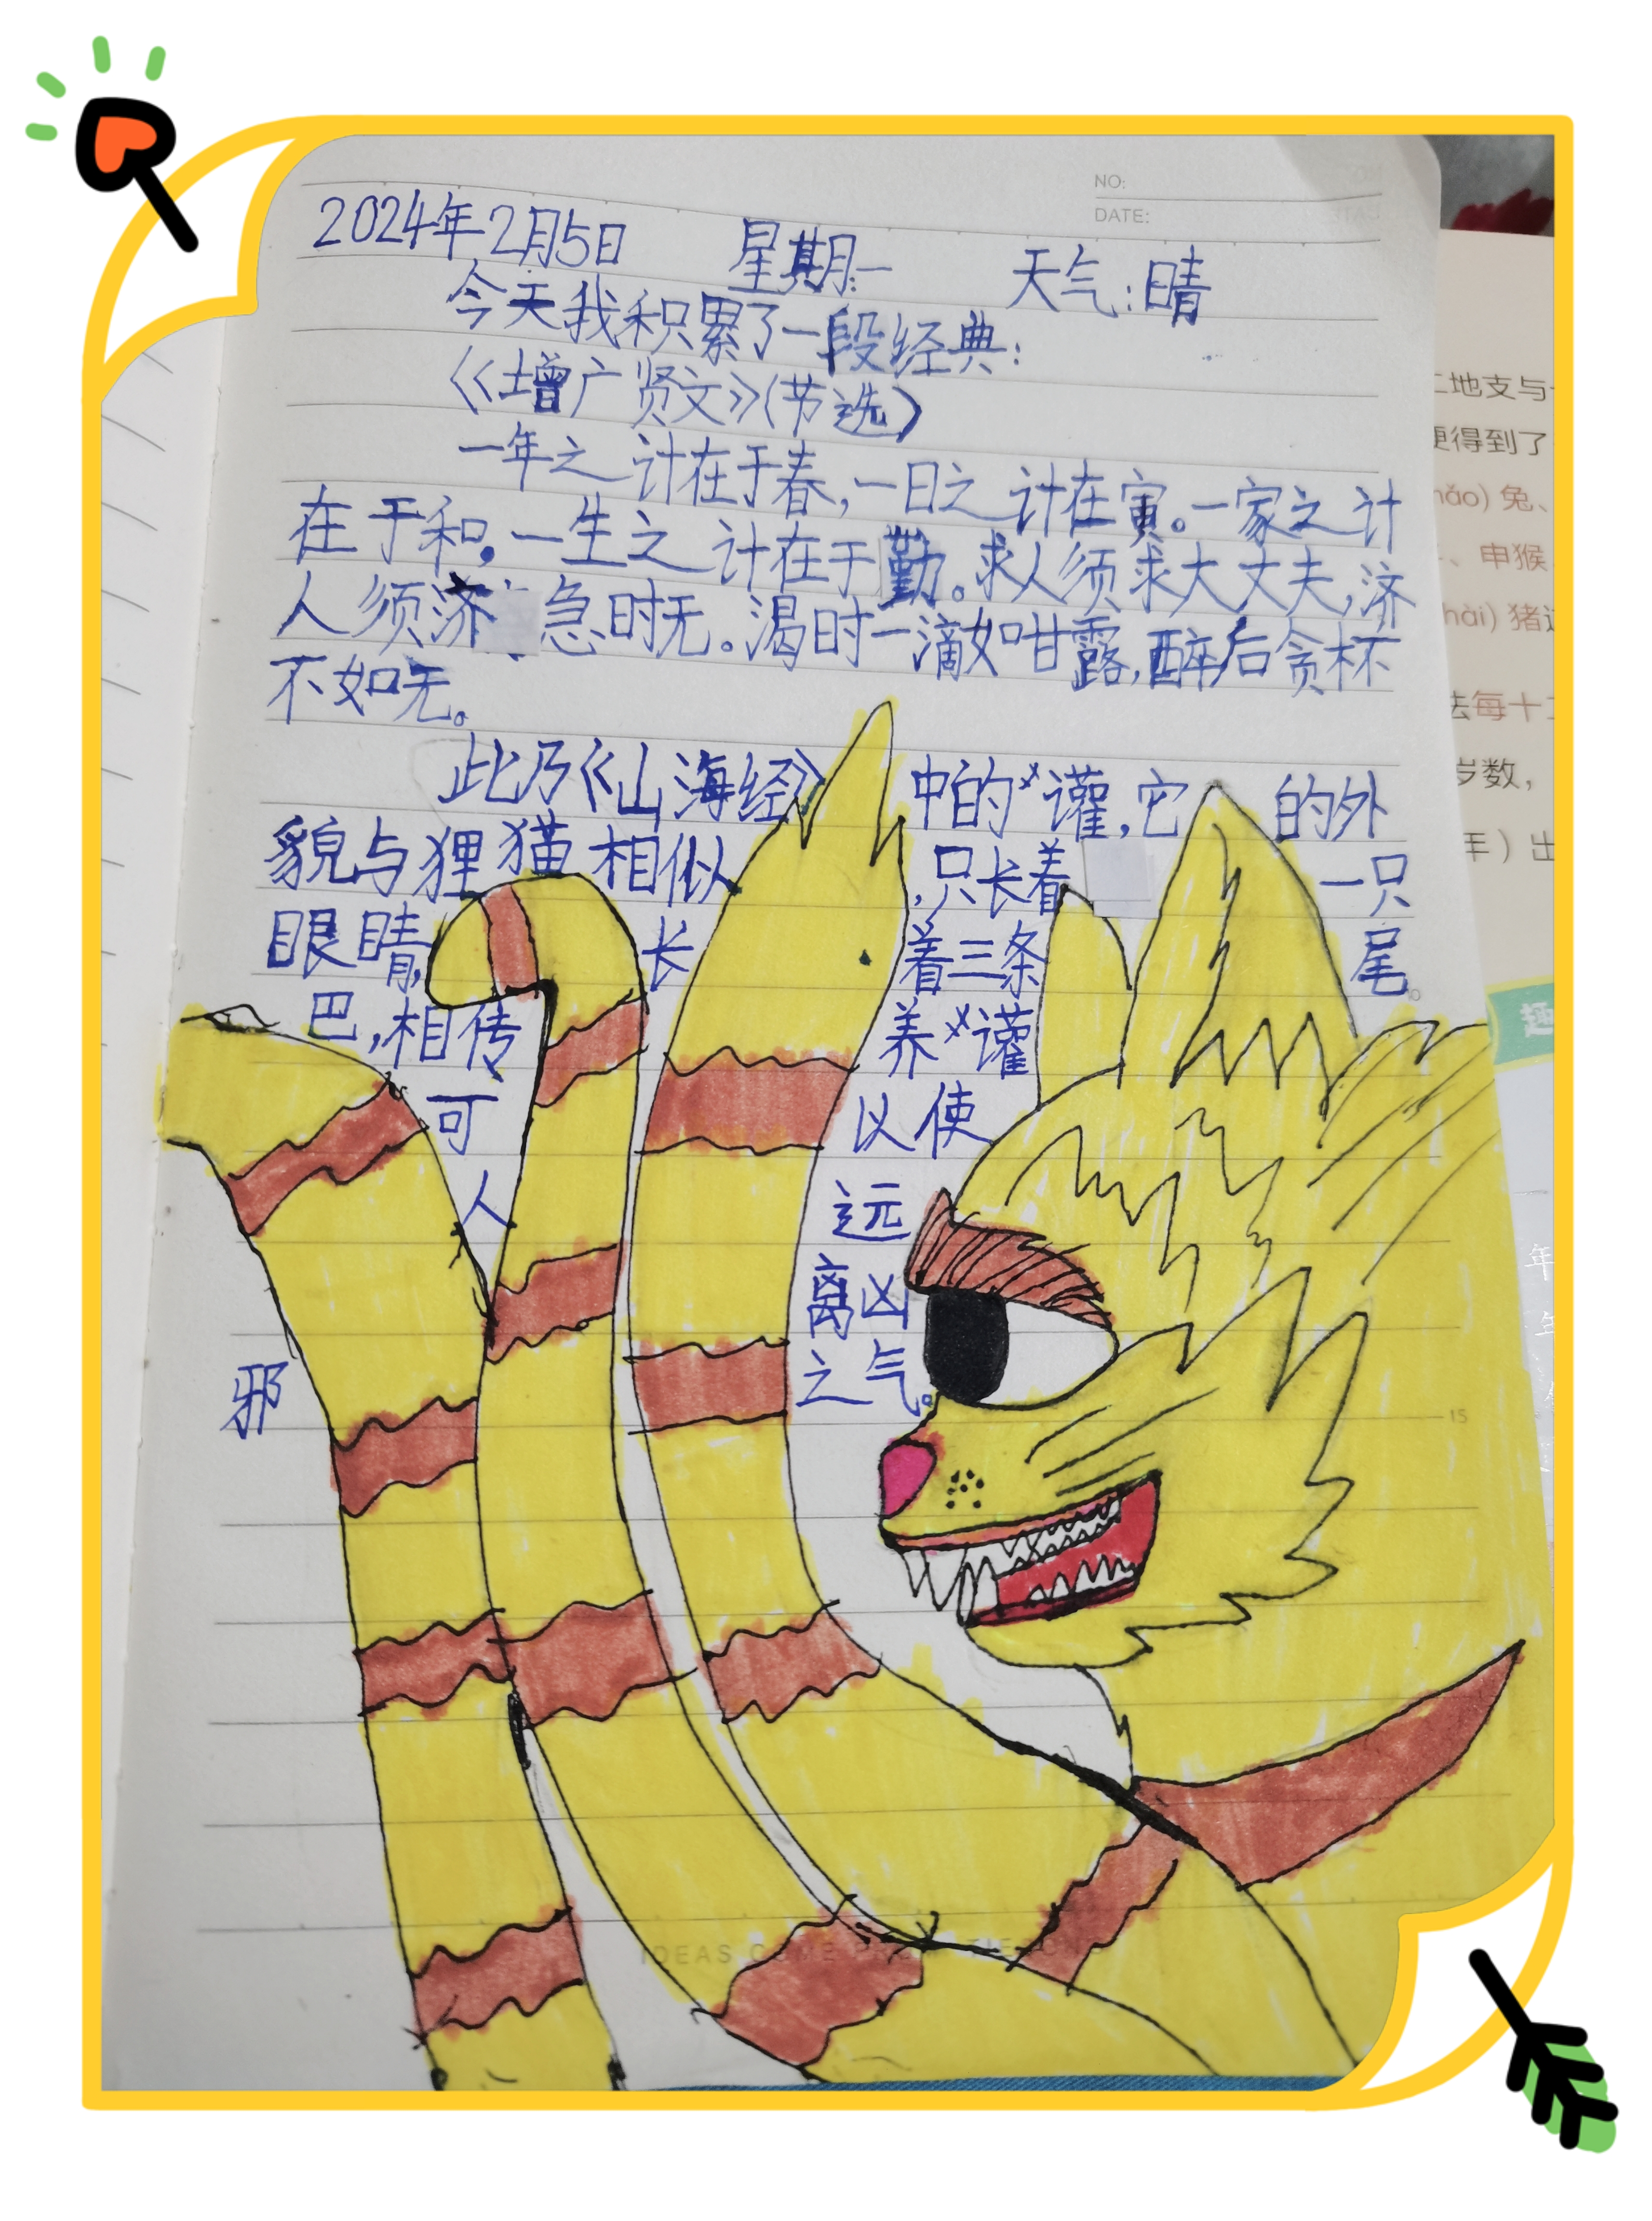 NO:
DATE:
2024年2月5日 星期一 天气:晴
今天我积累了一段经典:
《增广贤文》(节选)
一年之计在于春,一日之计在寅。一家之计
在于和,一生之计在于勤。求人须求大丈夫,济
人须济急时无。渴时一滴如甘露,醉后贪杯
不如无。
此乃《山海经》中的×讙,它的外
貌与狸猫相似,只长着一只
眼睛,长着三条尾
巴,相传养×讙
可以使
人远
离凶
邪之气。
15
IDEAS COME
地支与
便得到了
hǎo) 兔、
、申猴
hài) 猪
法每十
岁数,
年)出
趣